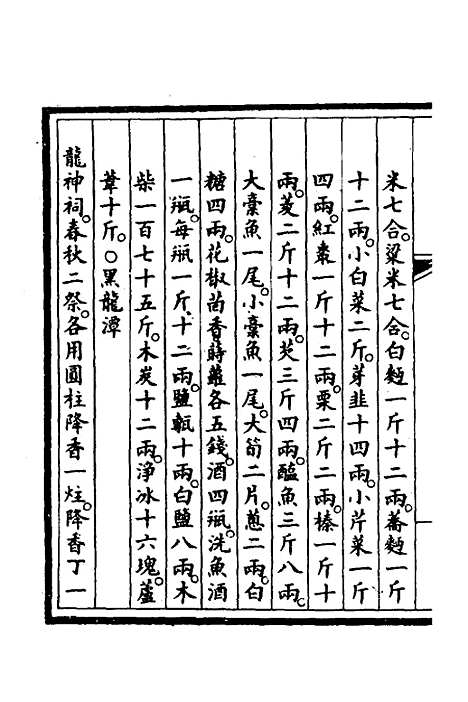 米七合。粱米七合。白麵一斤十二兩。蕎麵一斤
十二兩。小白菜二斤。芽韭十四兩。小芹菜一斤
四兩。紅棗一斤十二兩。栗二斤二兩。榛一斤十
兩。菱二斤十二兩。芡三斤四兩。醢魚三斤八兩。
大藁魚一尾。小藁魚一尾。大筍二片。蔥二兩。白
糖四兩。花椒茴香蒔蘿各五錢。酒四瓶。洗魚酒
一瓶。每瓶一斤十二兩。鹽甎十兩。白鹽八兩。木
柴一百七十五斤。木炭十二兩。淨冰十六塊。蘆
葦十斤。○黑龍潭
龍神祠。春秋二祭。各用圓柱降香一炷。降香丁一